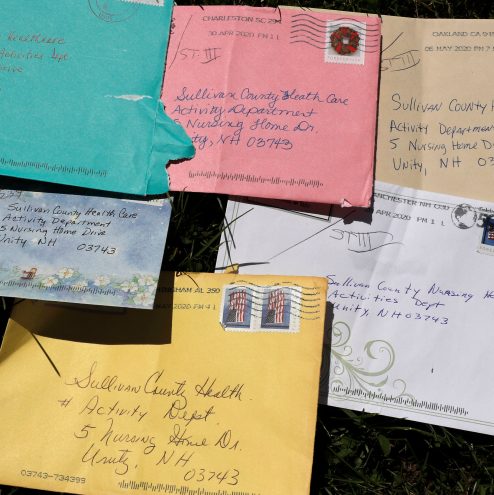 Healthcare
Activities Dept
Drive
CHARLESTON SC 294
30 APR 2020 PM 1 L
ST III
FOREVER
Sullivan County Heath Care
Activity Department
5 Nursing Home Dr.
Unity, NH 03743
OAKLAND CA 945
06 MAY 2020 PM 7
Sullivan County H
Activity Department
5 Nursing Home Dr
Unity, NH 03
Sullivan County Health Care
Activity Department
5 Nursing Home Drive
Unity NH 03743
MANCHESTER NH 030
APR 2020 PM 1 L
ST III
Sullivan County Nursing H
Activities Dept
Unity, NH 03743
BIRMINGHAM AL 350
MAY 2020 PM 4 L
Sullivan County Health
# Activity Dept.
5 Nursing Home Dr.
Unity, NH
03743
03743-734399